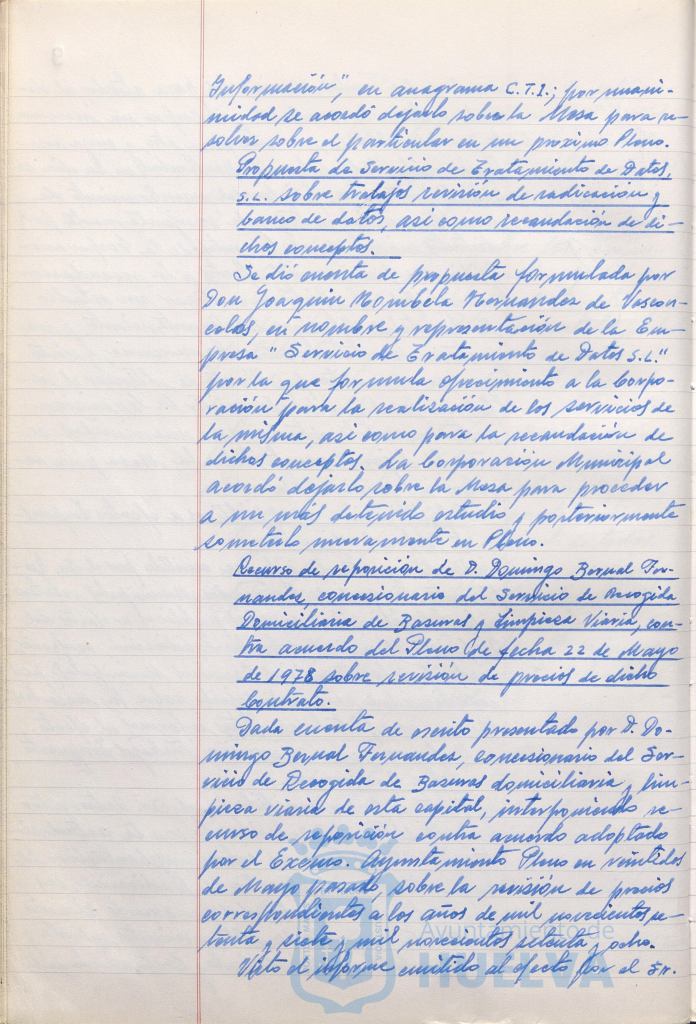 Información", en anagrama C.T.I.; por unani-
midad se acordó dejarlo sobre la Mesa para re-
solver sobre el particular en un proximo Pleno.
Propuesta de Servicio de Tratamiento de Datos,
S.L. sobre trabajos revisión de radicación y
banco de datos, asi como recaudación de di-
chos conceptos.
Se dió cuenta de propuesta formulada por
Don Joaquin Mombela Hernandez de Vascon-
celos, en nombre y representación de la Em-
presa "Servicio de Tratamiento de Datos S.L."
por la que formula ofrecimiento a la Corpo-
ración para la realización de los servicios de
la misma, asi como para la recaudación de
dichos conceptos. La Corporación Municipal
acordó dejarlo sobre la Mesa para proceder
a un más detenido estudio y posteriormente
someterlo nuevamente en Pleno.
Recurso de reposición de D. Domingo Bernal Fer-
nandez, concesionario del Servicio de Recogida
Domiciliaria de Basuras y Limpieza Viaria, con-
tra acuerdo del Pleno de fecha 22 de Mayo
de 1978 sobre revisión de precios de dicho
Contrato.
Dada cuenta de escrito presentado por D. Do-
mingo Bernal Fernandez, concesionario del Ser-
vicio de Recogida de Basuras domiciliaria y lim-
pieza viaria de esta capital, interponiendo re-
curso de reposición contra acuerdo adoptado
por el Excmo. Ayuntamiento Pleno en veintidos
de Mayo pasado, sobre la revisión de precios
correspondientes a los años de mil novecientos se-
tenta y siete y mil novecientos setenta y ocho.
Visto el informe emitido al efecto por el Sr.
Ayuntamiento de
HUELVA